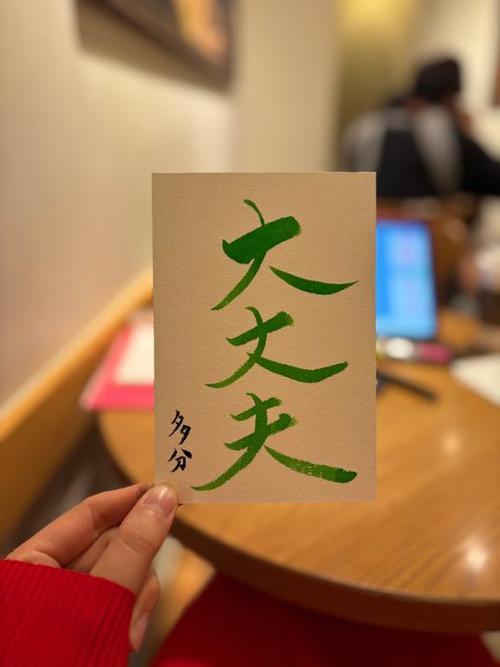 大丈夫
多分